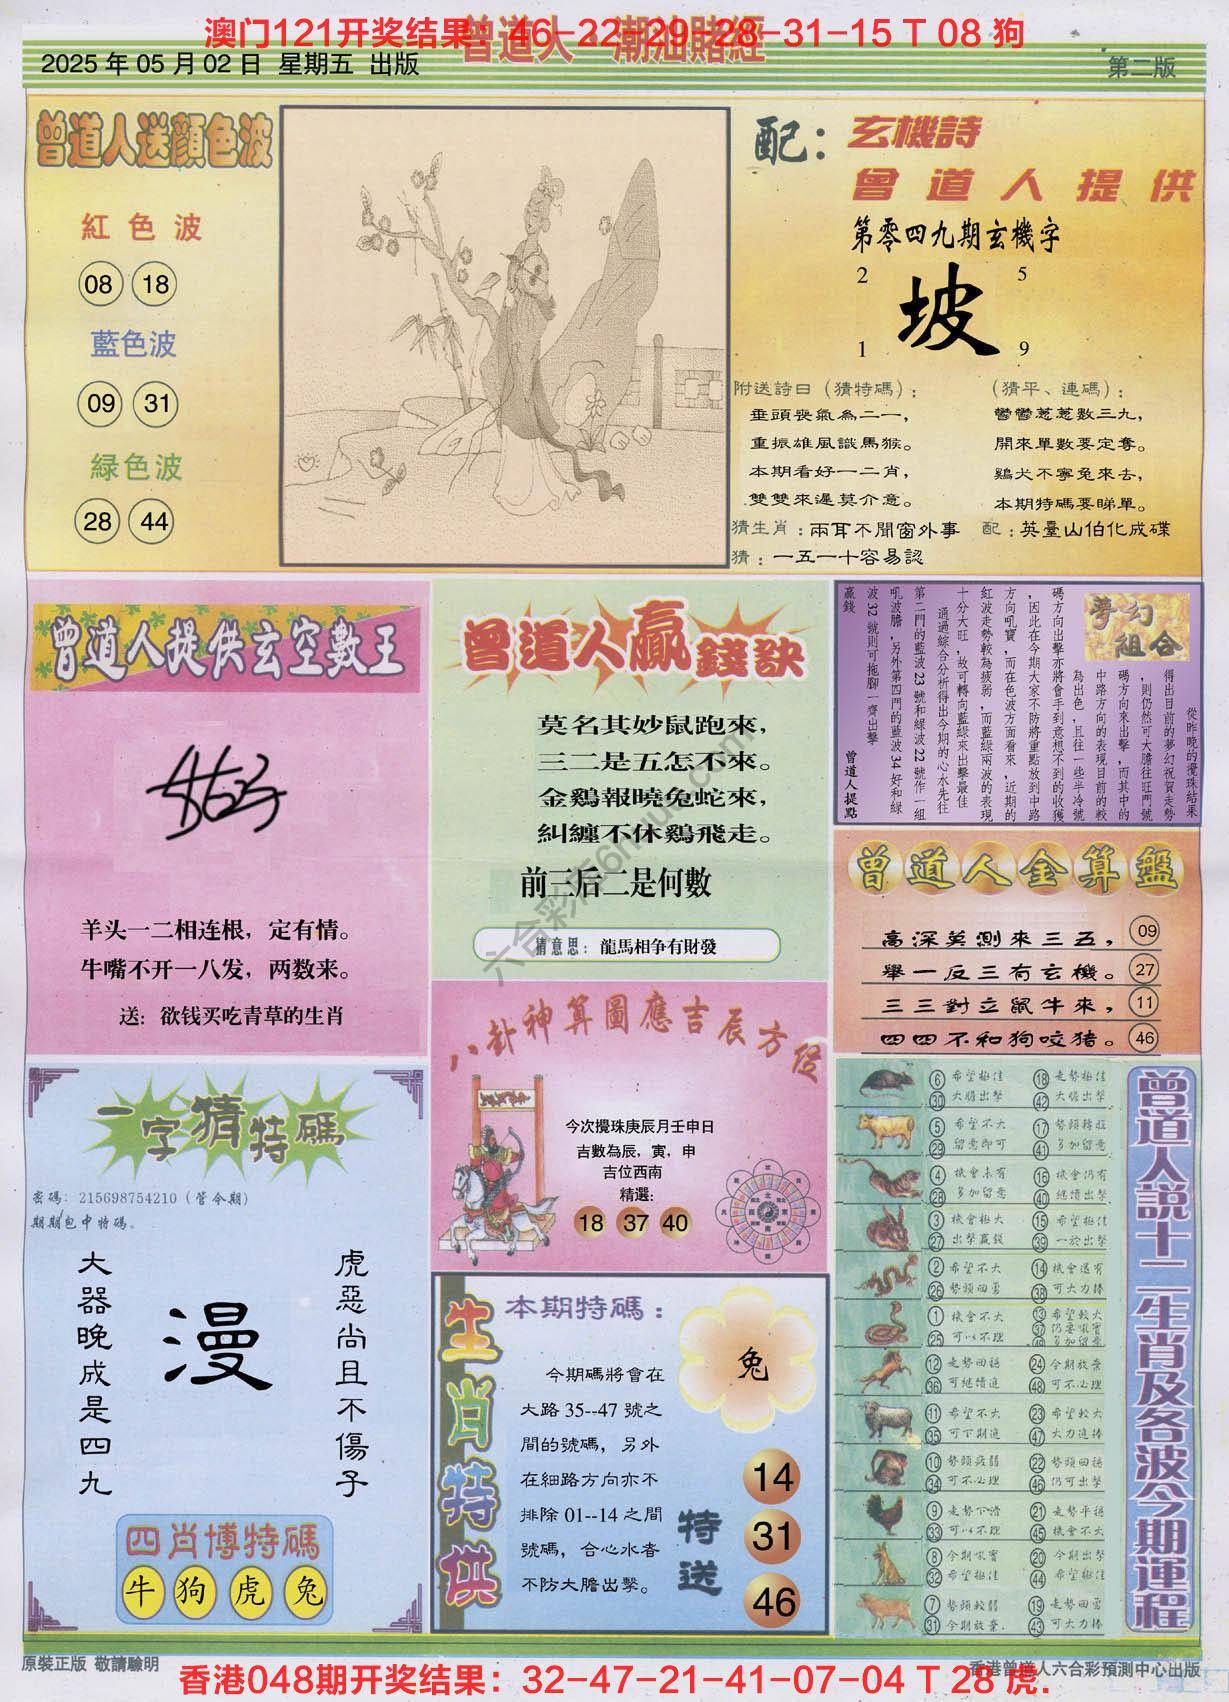 澳门121开奖结果：46-22-29-28-31-15 T 08 狗
曾道人·潮汕賭經
2025 年 05 月 02 日 星期五 出版
第二版
曾道人送顔色波
紅色波
08 18
藍色波
09 31
緑色波
28 44
配：玄機詩
曾道人提供
第零四九期玄機字
2 5
坡
1 9
附送詩曰（猜特碼）：
垂頭喪氣為二一，
重振雄風識馬猴。
本期看好一二肖，
雙雙來遲莫介意。
（猜平、連碼）：
鬱鬱蔥蔥數三九，
開來單數要定奪。
鷄犬不寧兔來去，
本期特碼要睇單。
猜生肖：兩耳不聞窗外事 配：英臺山伯化成碟
猜：一五一十容易認
曾道人提供玄空數王
羊头一二相连根，定有情。
牛嘴不开一八发，两数来。
送：欲钱买吃青草的生肖
曾道人贏錢訣
莫名其妙鼠跑來，
三二是五怎不來。
金鷄報曉兔蛇來，
糾纏不休鷄飛走。
前三后二是何數
猜意思：龍馬相争有財發
夢幻組合
從昨晚的攪珠結果
得出目前的夢幻祝賀走勢
，則仍然可大膽往旺門號
碼方向來出擊，而其中的
中路方向的表現目前的較
為出色，且往一些半冷號
碼方向出擊亦將會手到意想不到的收獲
，因此在今期大家不防將重點放到中路
方向吼寶，而在色波方面看來，近期的
紅波走勢較為疲弱，而藍緑兩波的表現
十分大旺，故可轉向藍緑來出擊最佳
通過綜合分析得出今期的心水先往
第二門的藍波 23 號和緑波 22 號作一組
吼波膽，另外第四門的藍波 34 好和緑
波 32 號則可拖脚一齊出擊
贏錢
曾道人提點
曾道人金算盤
高深莫測來三五， 09
舉一反三有玄機。 27
三三對立鼠牛來， 11
四四不和狗咬猪。 46
八卦神算圖應吉辰方位
今次攪珠庚辰月壬申日
吉數為辰，寅，申
吉位西南
精選：
18 37 40
一字猜特碼
密碼：215698754210（管今期）
期期包中特碼。
虎惡尚且不傷子
漫
大器晚成是四九
四肖博特碼
牛 狗 虎 兔
生肖特供
本期特碼：
兔
今期碼將會在
大路 35--47 號之
間的號碼，另外
在細路方向亦不
排除 01--14 之間
號碼，合心水者
不防大膽出擊。
特送
14
31
46
曾道人説十二生肖及各波今期運程
6 希望極佳 18 走勢極佳
30 大膽出擊 42 大膽出擊
5 希望不大 17 勢頭轉旺
29 留意即可 41 多加留意
4 機會未有 16 機會仍有
28 多加留意 40 繼續出擊
3 機會極大 15 希望極佳
27 出擊贏錢 39 一於出擊
2 希望不大 14 機會還有
26 勢頭回勇 38 可大力捧
1 機會不大 13 希望較大
25 可以不理 37 仍要吼實
49 多加留意
12 走勢回穩 24 今期放棄
36 可繼續追 48 可不必理
11 希望不大 23 希望較大
35 可下期追 47 大力追捧
10 勢頭疲弱 22 勢頭回穩
34 可不必理 46 仍可出擊
9 走勢下滑 21 走勢平穩
33 可以不理 45 機會不大
8 今期吼實 20 今期出擊
32 希望極佳 44 希望極佳
7 勢頭較弱 19 走勢回勇
31 今期放棄. 43 可大力捧
原裝正版 敬請驗明
香港曾道人六合彩預測中心出版
香港048期开奖结果：32-47-21-41-07-04 T 28 虎.